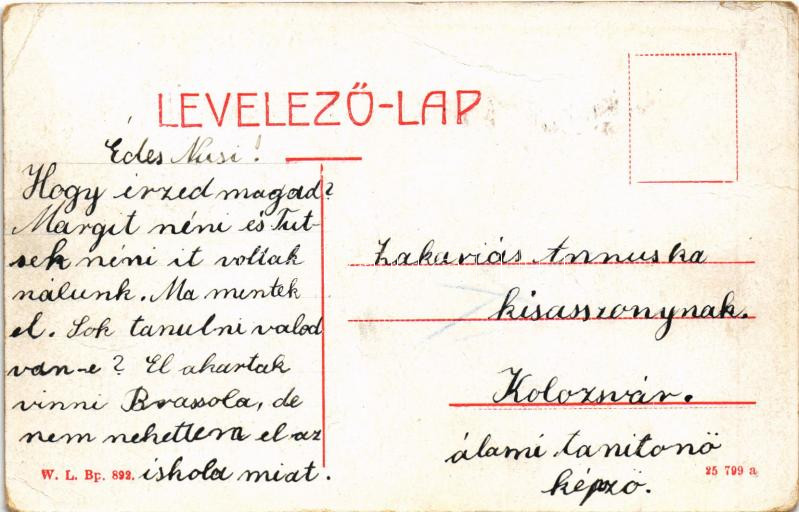 LEVELEZŐ-LAP
Édes Nusi!
Hogy érzed magad?
Margit néni és Tut-
sek néni it voltak
nálunk. Ma mentek
el. Sok tanulni valod
van-e? El akartak
vinni Brassola, de
nem mehettem el az
iskola miat.
Zakariás Annuska
kisasszonynak.
Kolozsvár.
álami tanitonö
képző.
W. L. Bp. 892.
25 799 a